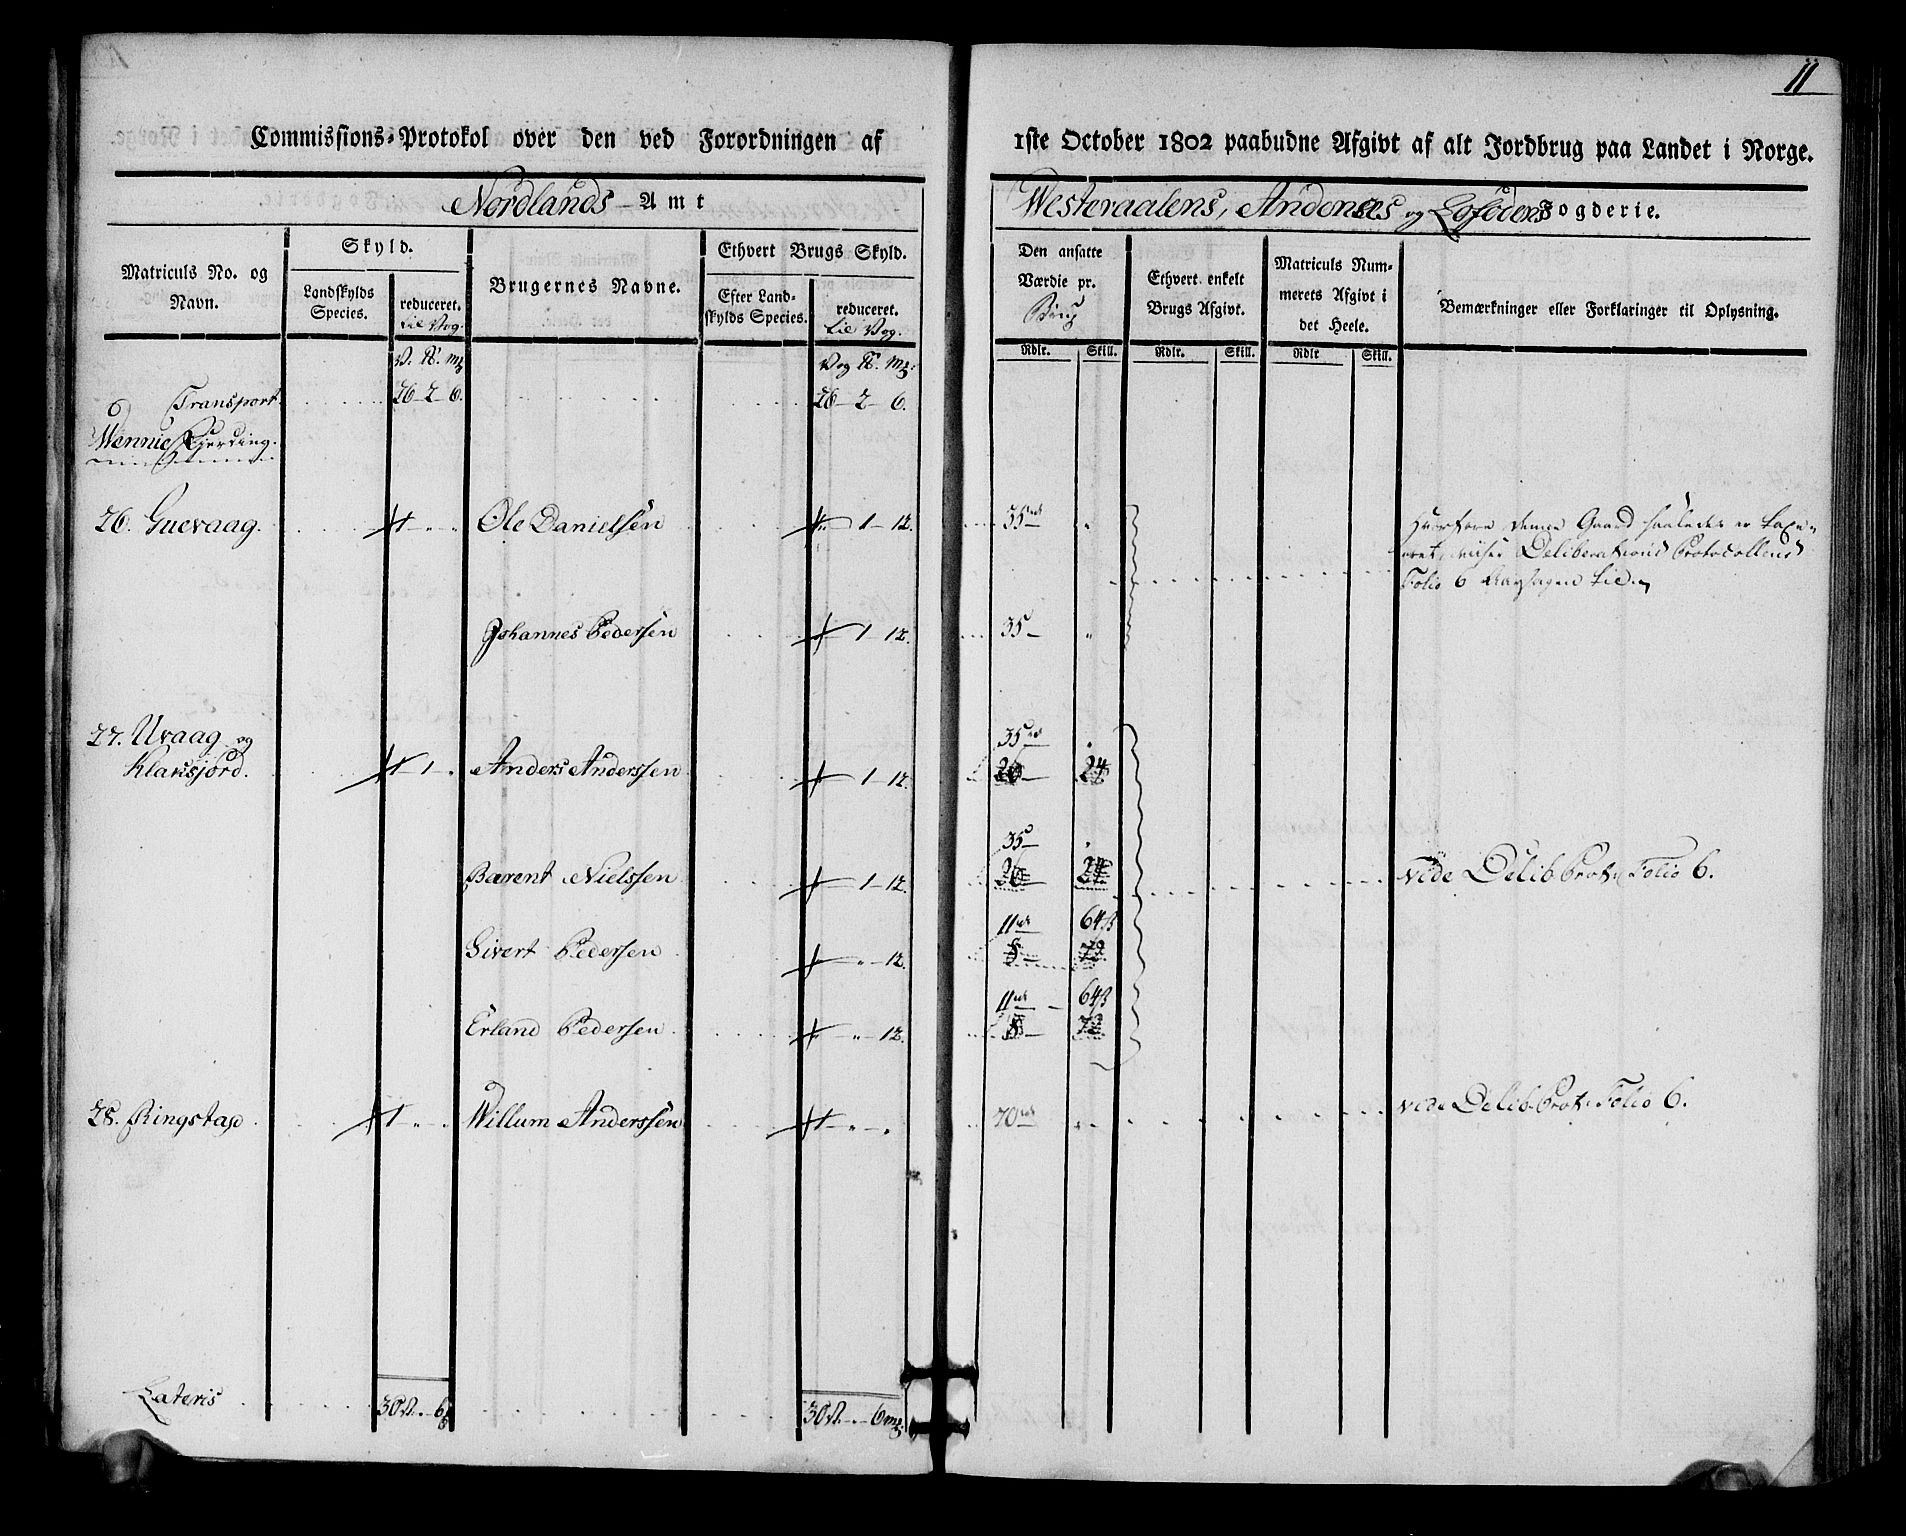 11
Commissions-Protokol over den ved Forordningen af 1ste October 1802 paabudne Afgivt af alt Jordbrug paa Landet i Norge.
Nordlands Amt
Westeraalens, Andenæs og Lofodens Fogderie.
Matriculs No. og Navn.
Skyld.
Landskylds Species.
reduceret. til Vog.
Brugernes Navne.
Ethvert Brugs Skyld.
Efter Landskylds Species.
reduceret. til Vog.
Den ansatte Værdie pr.
Rdlr. Skill.
Ethvert enkelt Brugs Afgivt.
Rdlr. Skill.
Matriculs Nummerets Afgivt i det Heele.
Rdlr Skill.
Bemærkninger eller Forklaringer til Oplysning.
V. ℔. mk
Vog ℔. mk.
Transport 26 2 6. 26 2 6.
Wennie Fjerding.
26. Guevaag. 1 " " Ole Danielsen " 1 12. 35 rd "
Hvorfore denne Gaard saaledes er taxe-
Deliberations Protocollens
Folio 6
Johannes Pedersen " 1 12. 35 "
27. Uvaag og
Klaksjord. 1 1 . Anders Anderssen " 1 12. 35 rd "
20 24
35 "
Barent Nielssen " 1 12. 20 24 vide Delib. Prot. Folio 6.
11 rd 64 ß
Sivert Pedersen " " 12. 8 72
11 rd 64 ß
Erland Pedersen " " 12. 8 72
28. Ringstad 1 " . Willum Anderssen 1 " " 70 rd " vide Delib. Prot. Folio 6.
Lateris 30 V. . 6 30 V. . 6 mk.